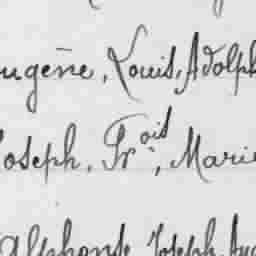 ugène, Louis, Adolph
oseph, Fr^ois, Marie
Alphonse Joseph, Aug